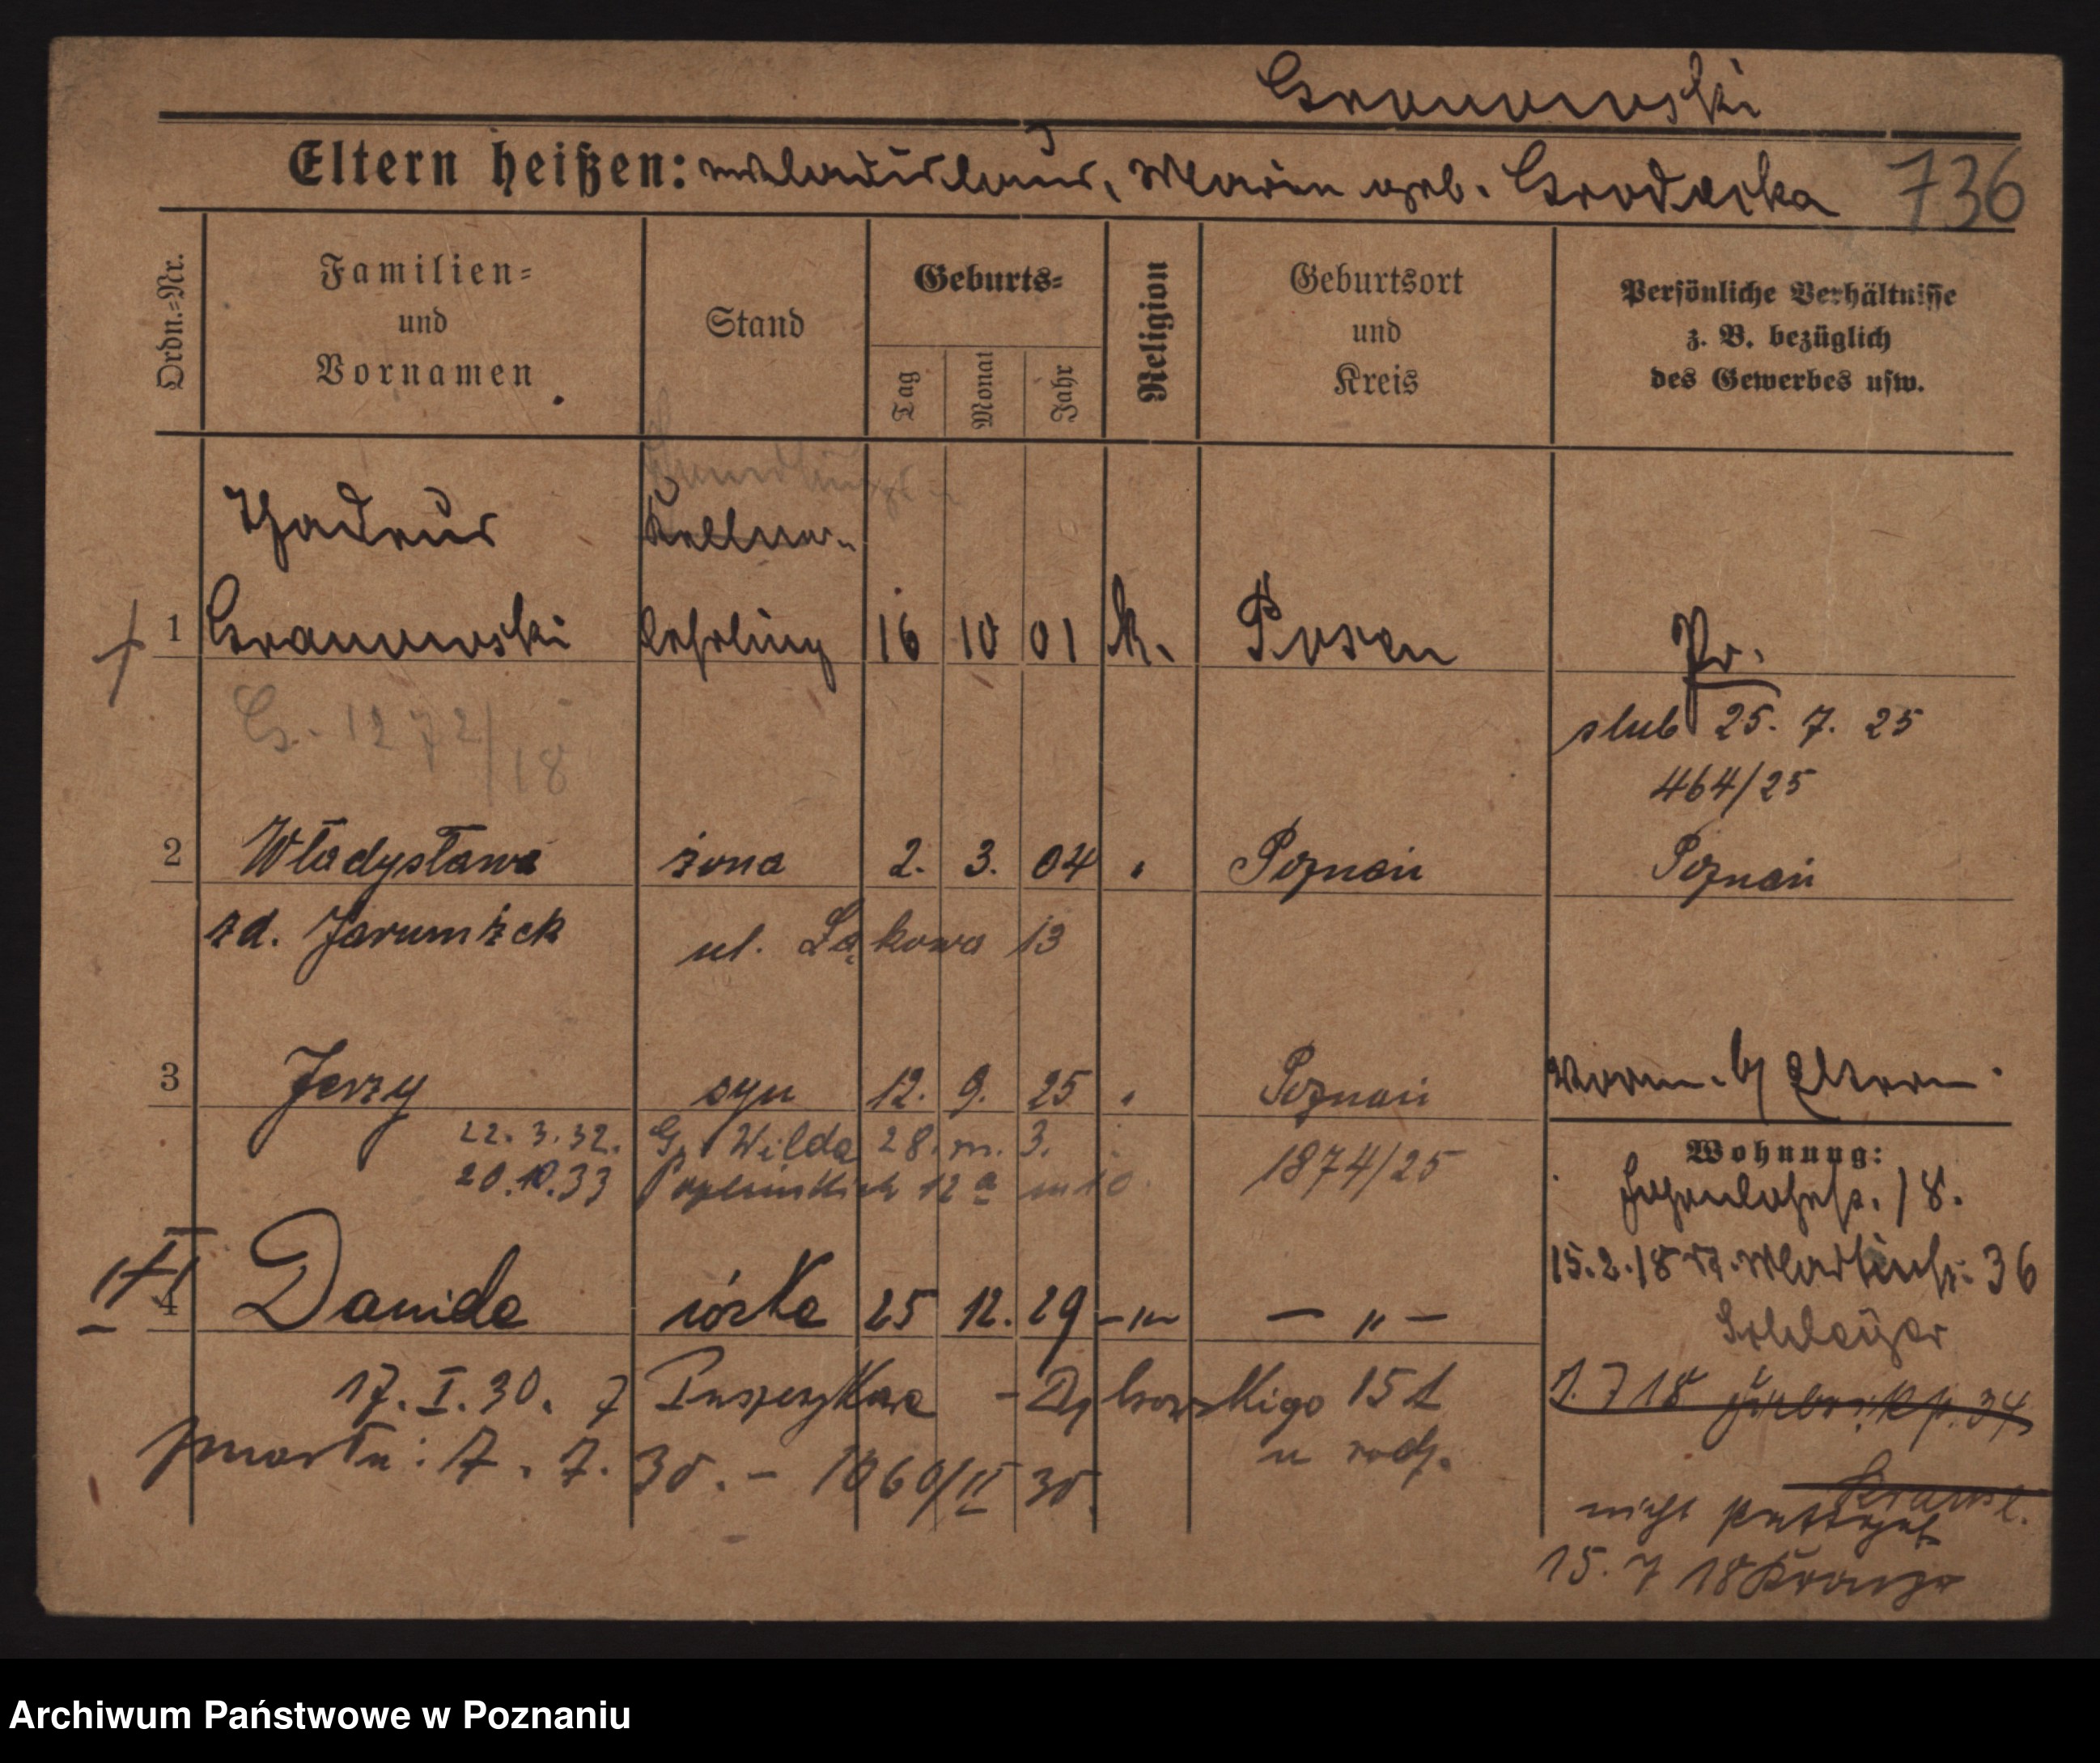 Granowski
Eltern heißen: Wladislaus, Maria geb. Grodecka 736
Ordn.-Nr.
Familien-
und
Vornamen
Stand
Geburts-
Tag
Monat
Jahr
Religion
Geburtsort
und
Kreis
Persönliche Verhältnisse
z. B. bezüglich
des Gewerbes usw.
Thadeus Kellner-
1 Granowski lehrling 16 10 01 k. Posen Pr.
G. 1272/18
slub 25. 7. 25
464/25
2 Władysława żona 2. 3. 04 Poznań Poznań
zd. Jarumżek ul. Łąkowa 13
3 Jerzy syn 12. 9. 25 Poznań Eltern
22. 3. 32. G. Wilda 28. m. 3.
20.10.33 12a m 10
1874/25
Wohnung:
18.
4 Danida córka 25 12. 29 -"- -"-
15.2.18 St. Martinstr. 36
17. I. 30. Dąbrowskiego
u rodz.
1. 7 18 34
zmarła: 7. 7. 30. - 1060/II 30.
nicht
15. 7 18
Archiwum Państwowe w Poznaniu